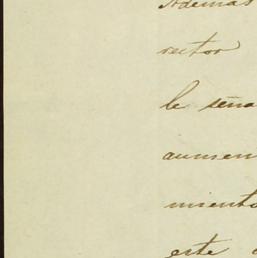 Además
rector
le seña
aumen
miento
este